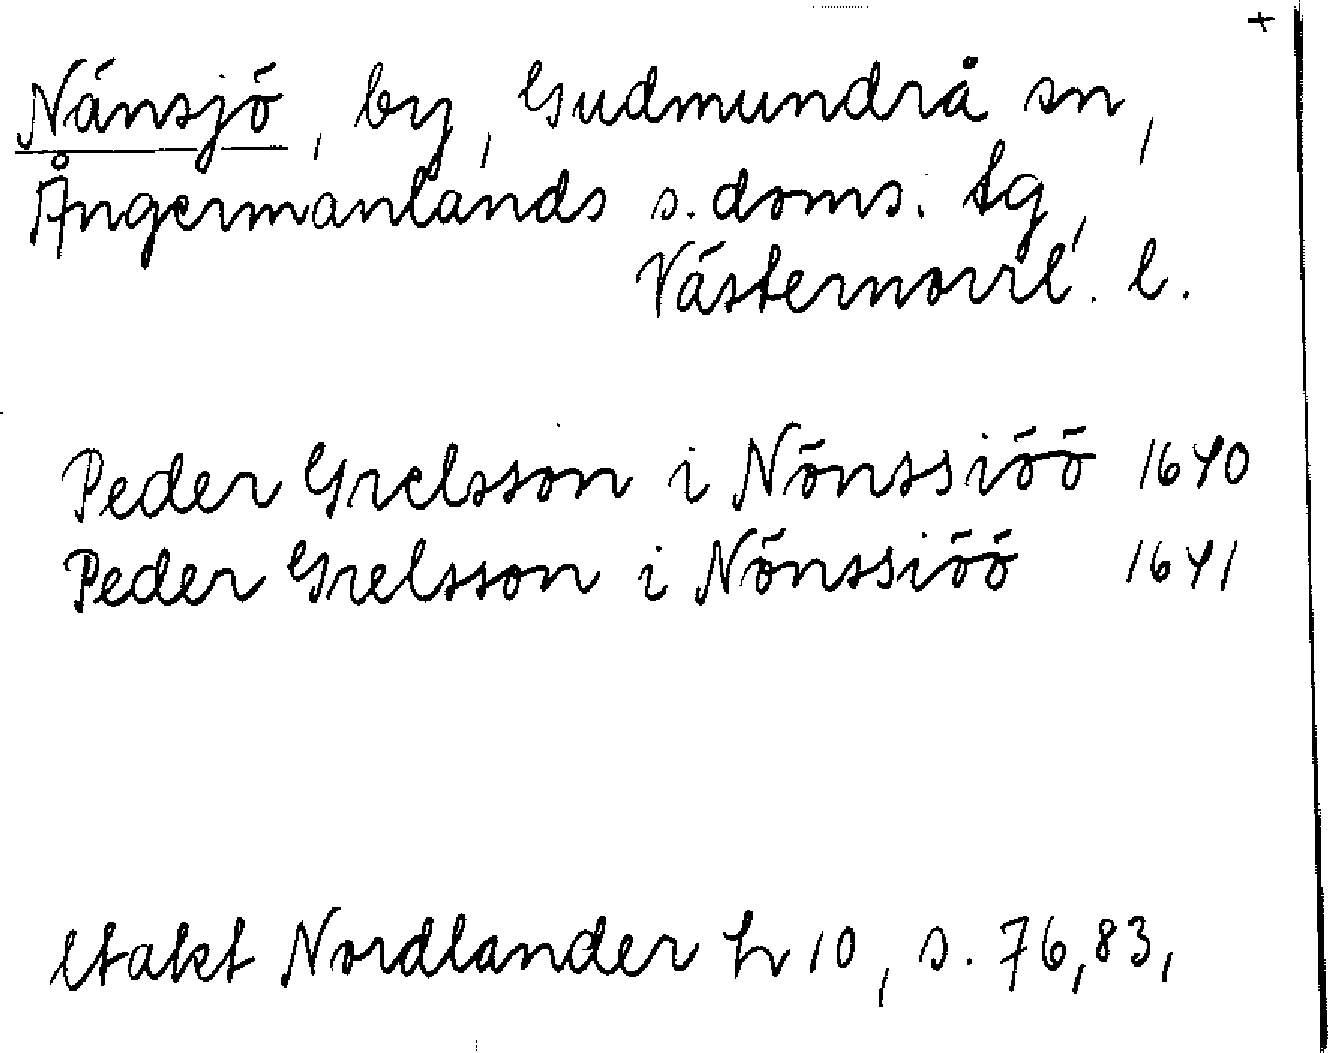 +
Nänsjö, by, Gudmundrå sn,
Ångermanlands s. doms. tg,
Västernorrl. l.
Peder Grelsson i Nönssiöö 1640
Peder Grelsson i Nönssiöö 1641
Nordlander h 10, s. 76, 83,